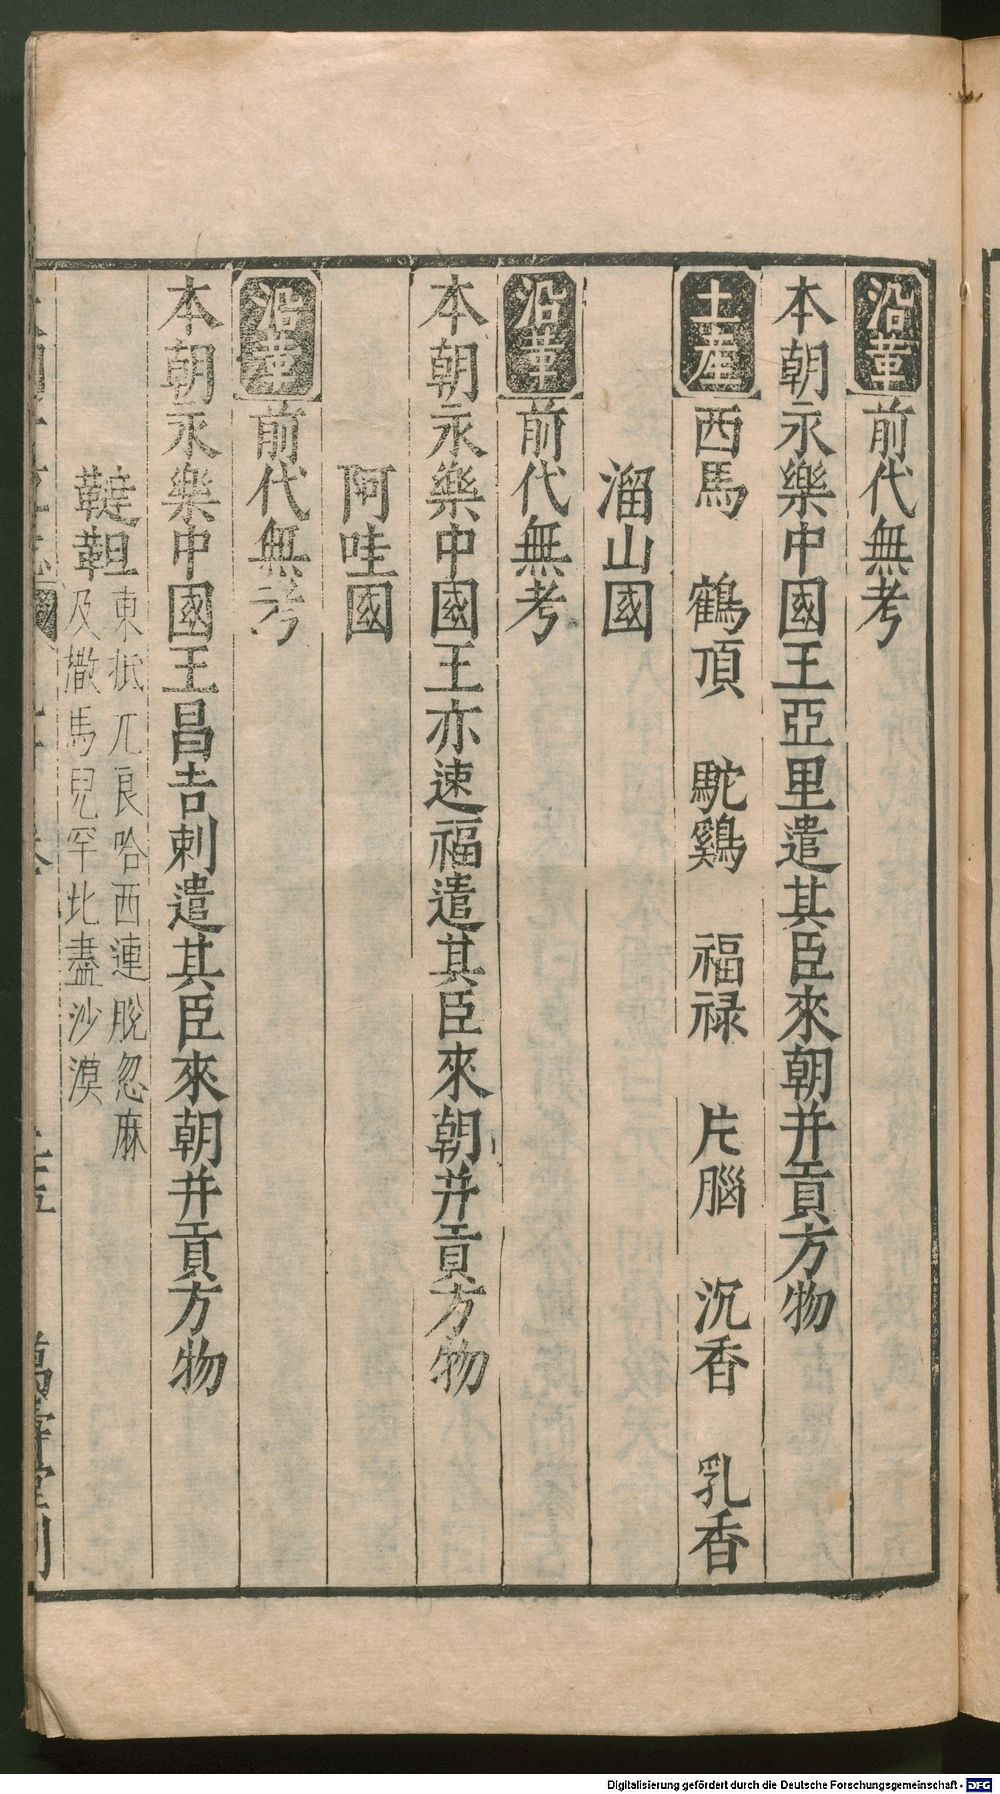 沿革前代無考
本朝永樂中國王亞里遣其臣來朝并貢方物
土產西馬　鶴頂　駝鷄　福禄　片腦　沉香　乳香
溜山國
沿革前代無考
本朝永樂中國王亦速福遣其臣來朝并貢方物
阿哇國
沿革前代無考
本朝永樂中國王昌吉剌遣其臣來朝并貢方物
韃靼東抵兀良哈西連脫忽麻
及撒馬兒罕北盡沙漠
萬壽堂刊
Digitalisierung gefördert durch die Deutsche Forschungsgemeinschaft - DFG